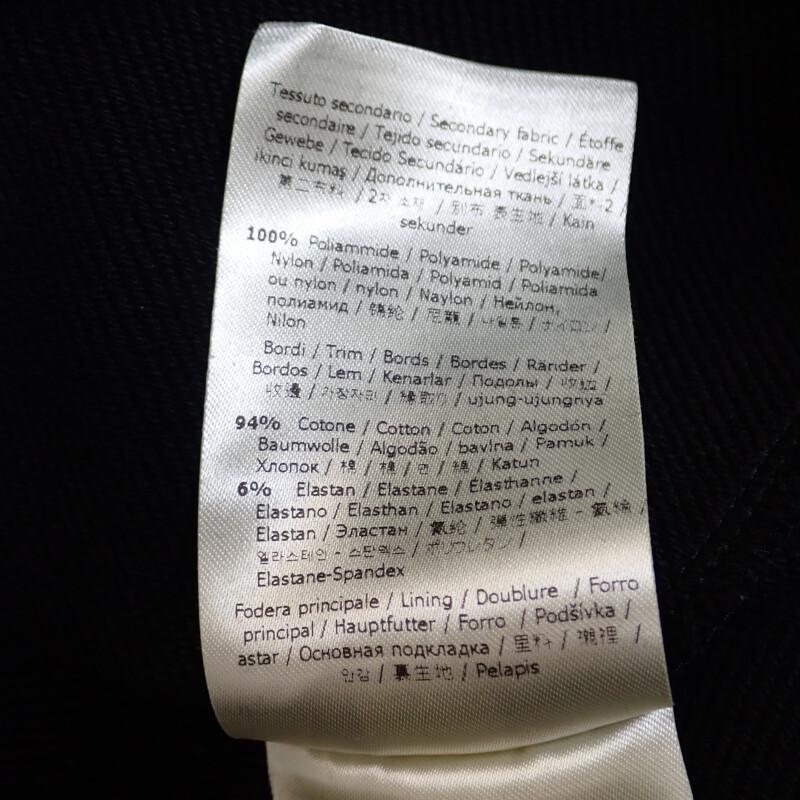 Tessuto secondario / Secondary fabric / Étoffe
secondaire / Tejido secundario / Sekundäre
Gewebe / Tecido Secundário / Vedlejší látka /
ikinci kumaş / Дополнительная ткань / 面料2 /
第二布料 / 2차 소재 / 別布 表生地 / Kain
sekunder
100% Poliammide / Polyamide / Polyamide/
Nylon / Poliamida / Polyamid / Poliamida
ou nylon / nylon / Naylon / Нейлон,
полиамид / 锦纶 / 尼龍 / 나일론 / ナイロン /
Nilon
Bordi / Trim / Bords / Bordes / Ränder /
Bordos / Lem / Kenarlar / Подолы / 收边 /
收邊 / 가장자리 / 縁取り / ujung-ujungnya
94% Cotone / Cotton / Coton / Algodón /
Baumwolle / Algodão / bavlna / Pamuk /
Хлопок / 棉 / 棉 / 면 / 綿 / Katun
6% Elastan / Elastane / Élasthanne /
Elastano / Elasthan / Elastano / elastan /
Elastan / Эластан / 氨纶 / 彈性纖維 - 氨綸 /
엘라스테인 - 스판덱스 / ポリウレタン /
Elastane-Spandex
Fodera principale / Lining / Doublure / Forro
principal / Hauptfutter / Forro / Podšívka /
astar / Основная подкладка / 里料 / 襯裡 /
안감 / 裏生地 / Pelapis